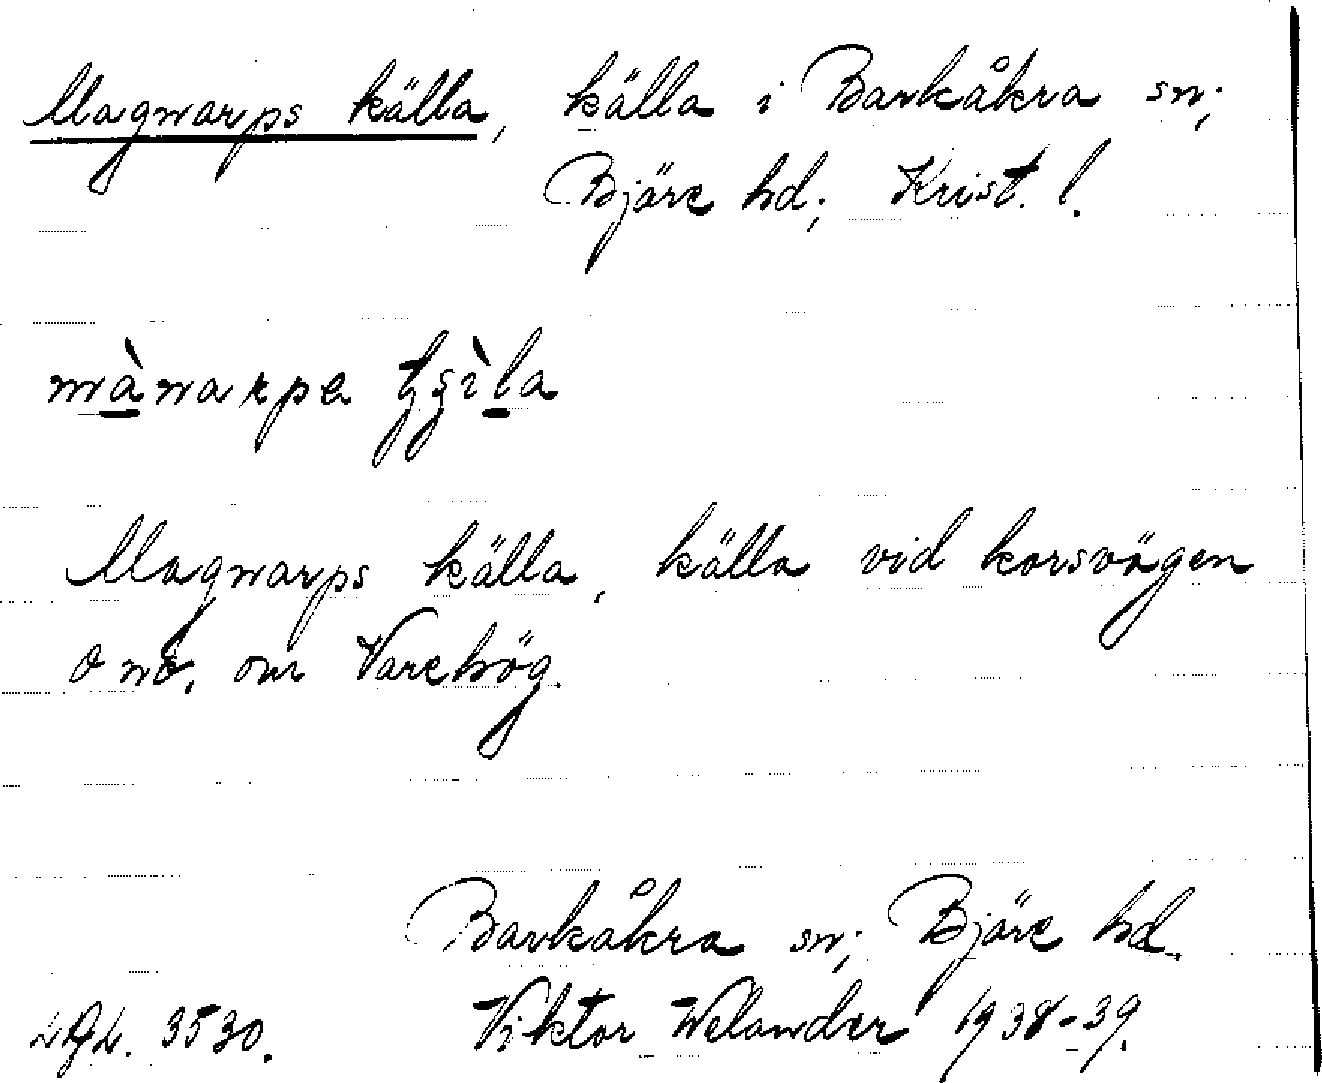 Magnarps källa, källa i Barkåkra sn;
Bjäre hd; Krist. l.
Magnarps källa, källa vid korsvägen
onö. om Varehög.
Barkåkra sn; Bjäre hd.
3530. Viktor Welander 1938-39.